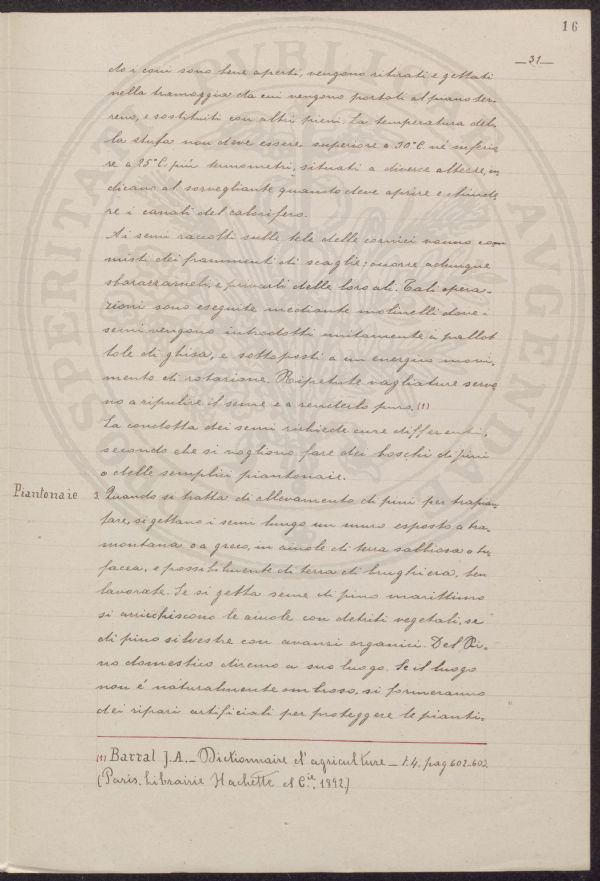 16
— 31 —
do i coni sono bene aperti, vengono ritirati e gettati
nella tramoggia da cui vengono portati al piano ter-
reno, e sostituiti con altri pieni. La temperatura del-
la stufa non deve essere superiore a 30°C. nè inferio
re a 25°C. più termometri, situati a diverse altezze, in
dicano al sorvegliante quando deve aprire e chiude
re i canali del calorifero.
Ai semi raccolti sulle tele delle cornici vanno com
misti dei frammenti di scaglie; occorre adunque
sbarazzarneli, e privarli delle loro ali. Tali opera-
zioni sono eseguite mediante molinelli dove i
semi vengono introdotti unitamente a pallot
tole di ghisa, e sottoposti a un energico movi-
mento di rotazione. Ripetute vagliature servo
no a ripulire il seme e a renderlo puro. (1)
La condotta dei semi richiede cure differenti,
secondo che si vogliono fare dei boschi di pini
o delle semplici piantonaie.
Piantonaie 3. Quando si tratta di allevamento di pini per trapian-
tare, si gettano i semi lungo un muro esposto a tra-
montana o a greco, in aiuole di terra sabbiosa o tu-
facea, e possibilmente di terra di brughiera, ben
lavorate. Se si getta seme di pino marittimo
si arricchiscono le aiuole con detriti vegetali, se
di pino silvestre con avanzi organici. Del Pi-
no domestico diremo a suo luogo. Se il luogo
non é naturalmente ombroso, si formeranno
dei ripari artificiali per proteggere le pianti-
(1) Barral J.A. — Dictionnaire d'agriculture — t.4. pag 602-602.
(Paris. Librairie Hachette et C.ie, 1892)
PROSPERITATI PUBLICAE AUGENDAE